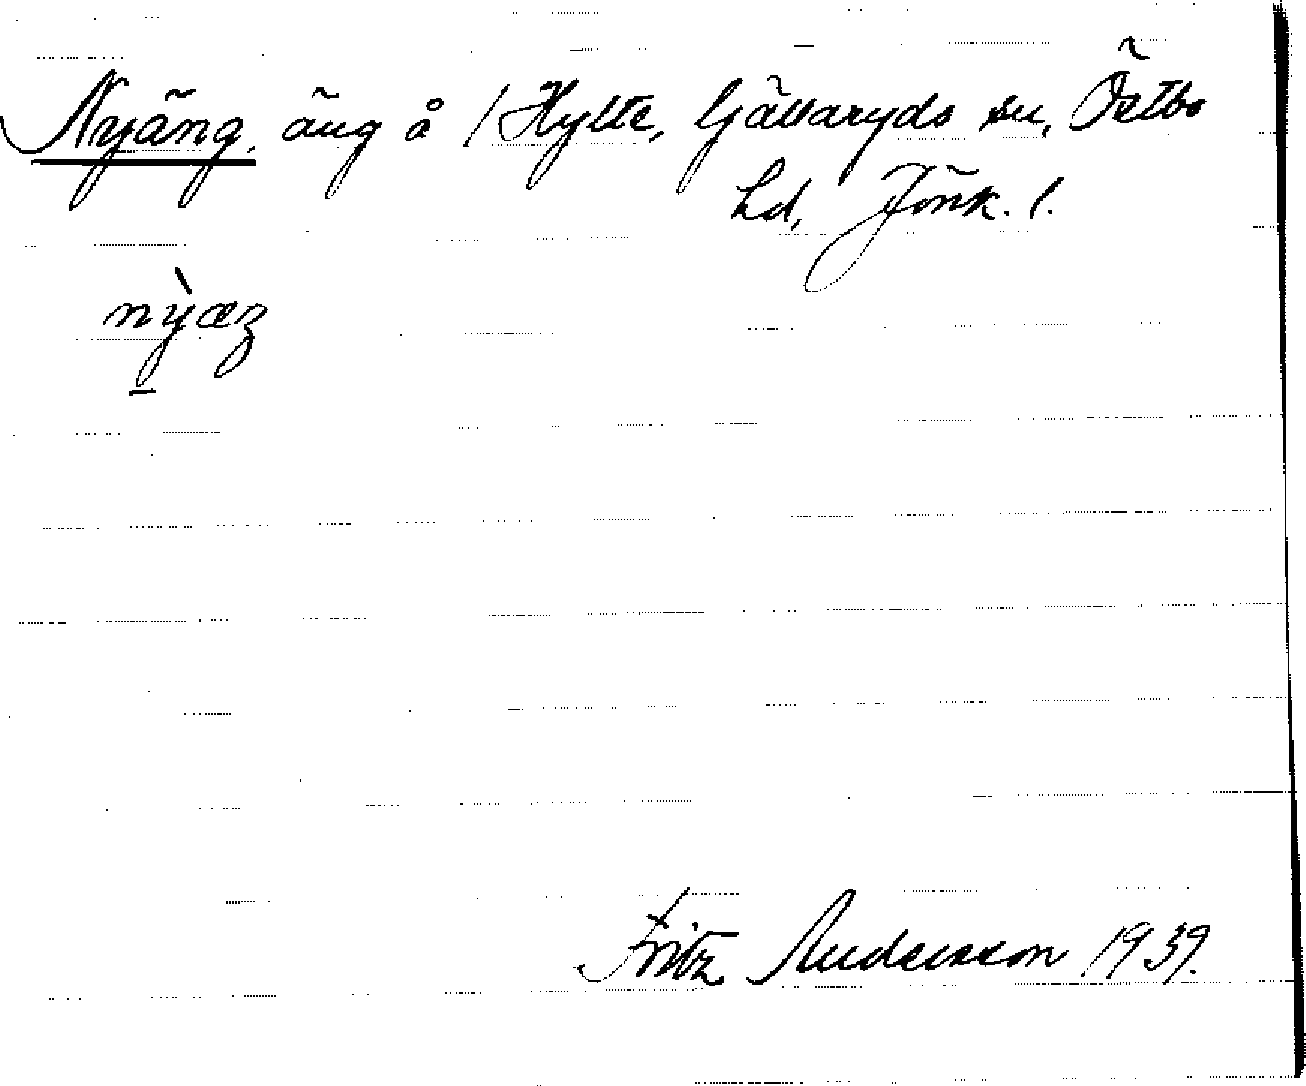 Nyäng, äng å /Hylte, Gällaryds sn, Östbo
hd, Jönk. l.
nỳæŋ
Fritz Andersson 1939.